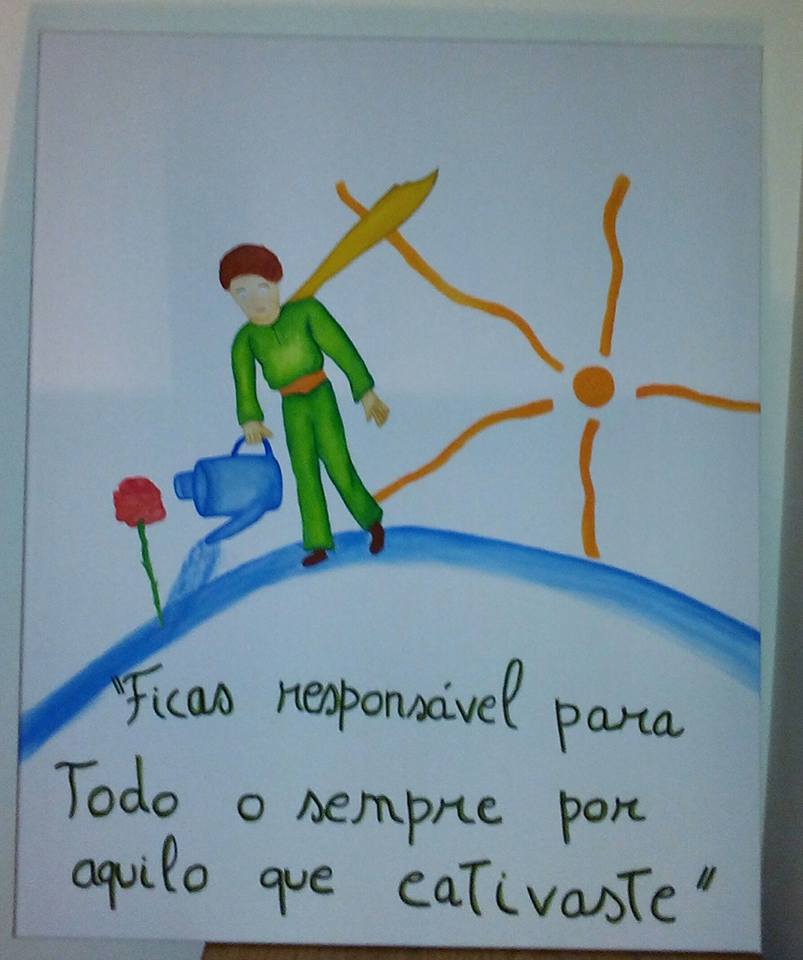 "Ficas responsável para
Todo o sempre por
aquilo que cativaste"